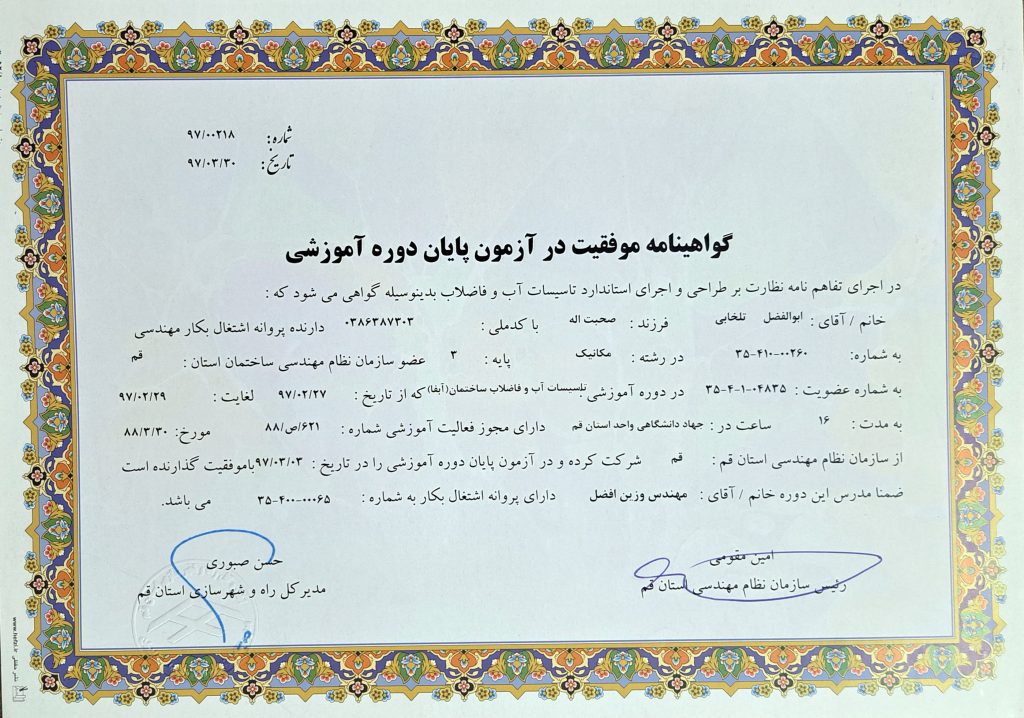 شماره: ۹۷/۰۰۲۱۸
تاریخ: ۹۷/۰۳/۳۰
گواهینامه موفقیت در آزمون پایان دوره آموزشی
در اجرای تفاهم نامه نظارت بر طراحی و اجرای استاندارد تاسیسات آب و فاضلاب بدینوسیله گواهی می شود که :
خانم / آقای : ابوالفضل تلخابی فرزند : صحبت اله با کدملی : ۰۳۸۶۳۸۷۳۰۳ دارنده پروانه اشتغال بکار مهندسی
به شماره: ۳۵-۴۱۰-۰۰۲۶۰ در رشته : مکانیک پایه : ۳ عضو سازمان نظام مهندسی ساختمان استان : قم
به شماره عضویت : ۳۵-۴-۱-۰۴۸۳۵ در دوره آموزشی : تاسیسات آب و فاضلاب ساختمان(آبفا) که از تاریخ : ۹۷/۰۲/۲۷ لغایت : ۹۷/۰۲/۲۹
به مدت : ۱۶ ساعت در : جهاد دانشگاهی واحد استان قم دارای مجوز فعالیت آموزشی شماره : ۸۸/ص/۶۲۱ مورخ: ۸۸/۳/۳۰
از سازمان نظام مهندسی استان قم : قم شرکت کرده و در آزمون پایان دوره آموزشی را در تاریخ : ۹۷/۰۳/۰۳ باموفقیت گذارنده است
ضمنا مدرس این دوره خانم / آقای : مهندس وزین افضل دارای پروانه اشتغال بکار به شماره : ۳۵-۴۰۰-۰۰۰۶۵ می باشد.
امین مقومی
رئیس سازمان نظام مهندسی استان قم
حسن صبوری
مدیر کل راه و شهرسازی استان قم